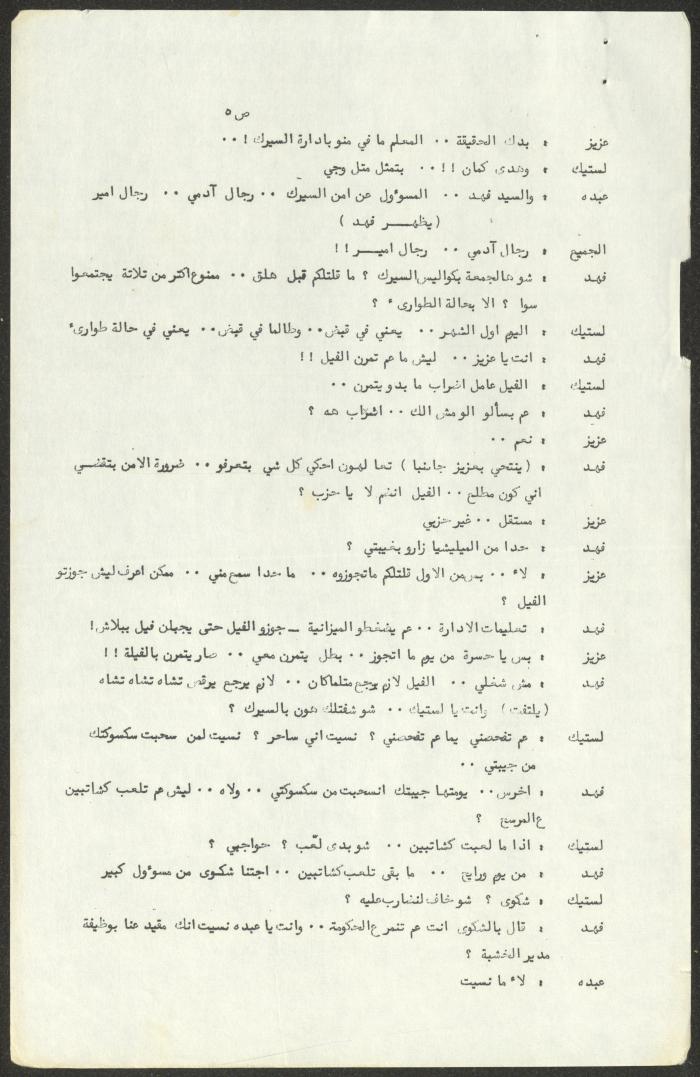 ص ٥
عزيز : بدك الحقيقة ٠٠ المعلم ما في منو بادارة السيرك ! ٠٠
لستيك : وهدى كمان !! ٠٠ بتمثل متل وجي
عبده : والسيد فهد ٠٠ المسؤول عن امن السيرك ٠٠ رجال آدمي ٠٠ رجال امير
( يظهـــر فهد )
الجميع : رجال آدمي ٠٠ رجال اميـــر !!
فهد : شو هالجمعة بكواليس السيرك ؟ ما قلتلكم قبل هلق ٠٠ ممنوع اكتر من تلاتة يجتمعوا
سوا ؟ الا بحالة الطوارىء ؟
لستيك : اليوم اول الشهر ٠٠ يعني في قبض ٠٠ وطالما في قبض ٠٠ يعني في حالة طوارىء
فهد : انت يا عزيز ٠٠ ليش ما عم تمرن الفيل !!
لستيك : الفيل عامل اضراب ما بدو يتمرن ٠٠
فهد : عم بسألو الو مش الك ٠٠ اضراب هه ؟
عزيز : نعم ٠٠
فهد : ( ينتحي بعزيز جانبا ) تعا لهون احكي كل شي بتعرفو ٠٠ ضرورة الامن بتقضـي
اني كون مطلع ٠٠ الفيل انضم لا يا حزب ؟
عزيز : مستقل ٠٠ غير حزبي
فهد : حدا من الميليشيا زارو بغيبتي ؟
عزيز : لاء ٠٠ بس من الاول قلتلكم ما تجوزوه ٠٠ ما حدا سمع مني ٠٠ ممكن اعرف ليش جوزتو
الفيل ؟
فهد : تعليمات الادارة ٠٠ عم يضغطو الميزانية ــ جوزو الفيل حتى يجبلن فيل ببلاش !
عزيز : بس يا حسرة من يوم ما اتجوز ٠٠ بطل يتمرن معي ٠٠ صار يتمرن بالفيلة !!
فهد : مش شغلي ٠٠ الفيل لازم يرجع متلما كان ٠٠ لازم يرجع يرقص تشاه تشاه تشاه
( يلتفت ) وانت يا لستيك ٠٠ شو شفتلك هون بالسيرك ؟
لستيك : عم تفحصني يما عم تفحصني ؟ نسيت اني ساحر ؟ نسيت لمن سحبت سكسوكتك
من جيبتي ٠٠
فهد : اخرس ٠٠ يومتها جيبتك انسحبت من سكسوكتي ٠٠ ولاه ٠٠ ليش عم تلعب كشاتبين
ع المرسح ؟
لستيك : اذا ما لعبت كشاتبين ٠٠ شو بدي لعّب ؟ حواجبي ؟
فهد : من يوم ورايح ٠٠ ما بقى تلعب كشاتبين ٠٠ اجتنا شكـوى من مسوؤل كبير
لستيك : شكوى ؟ شو خاف لنضارب عليه ؟
فهد : قال بالشكوى انت عم تنمر ع الحكومة ٠٠ وانت يا عبده نسيت انك مقيد عنا بوظيفة
مدير الخشبة ؟
عبده : لاء ما نسيت